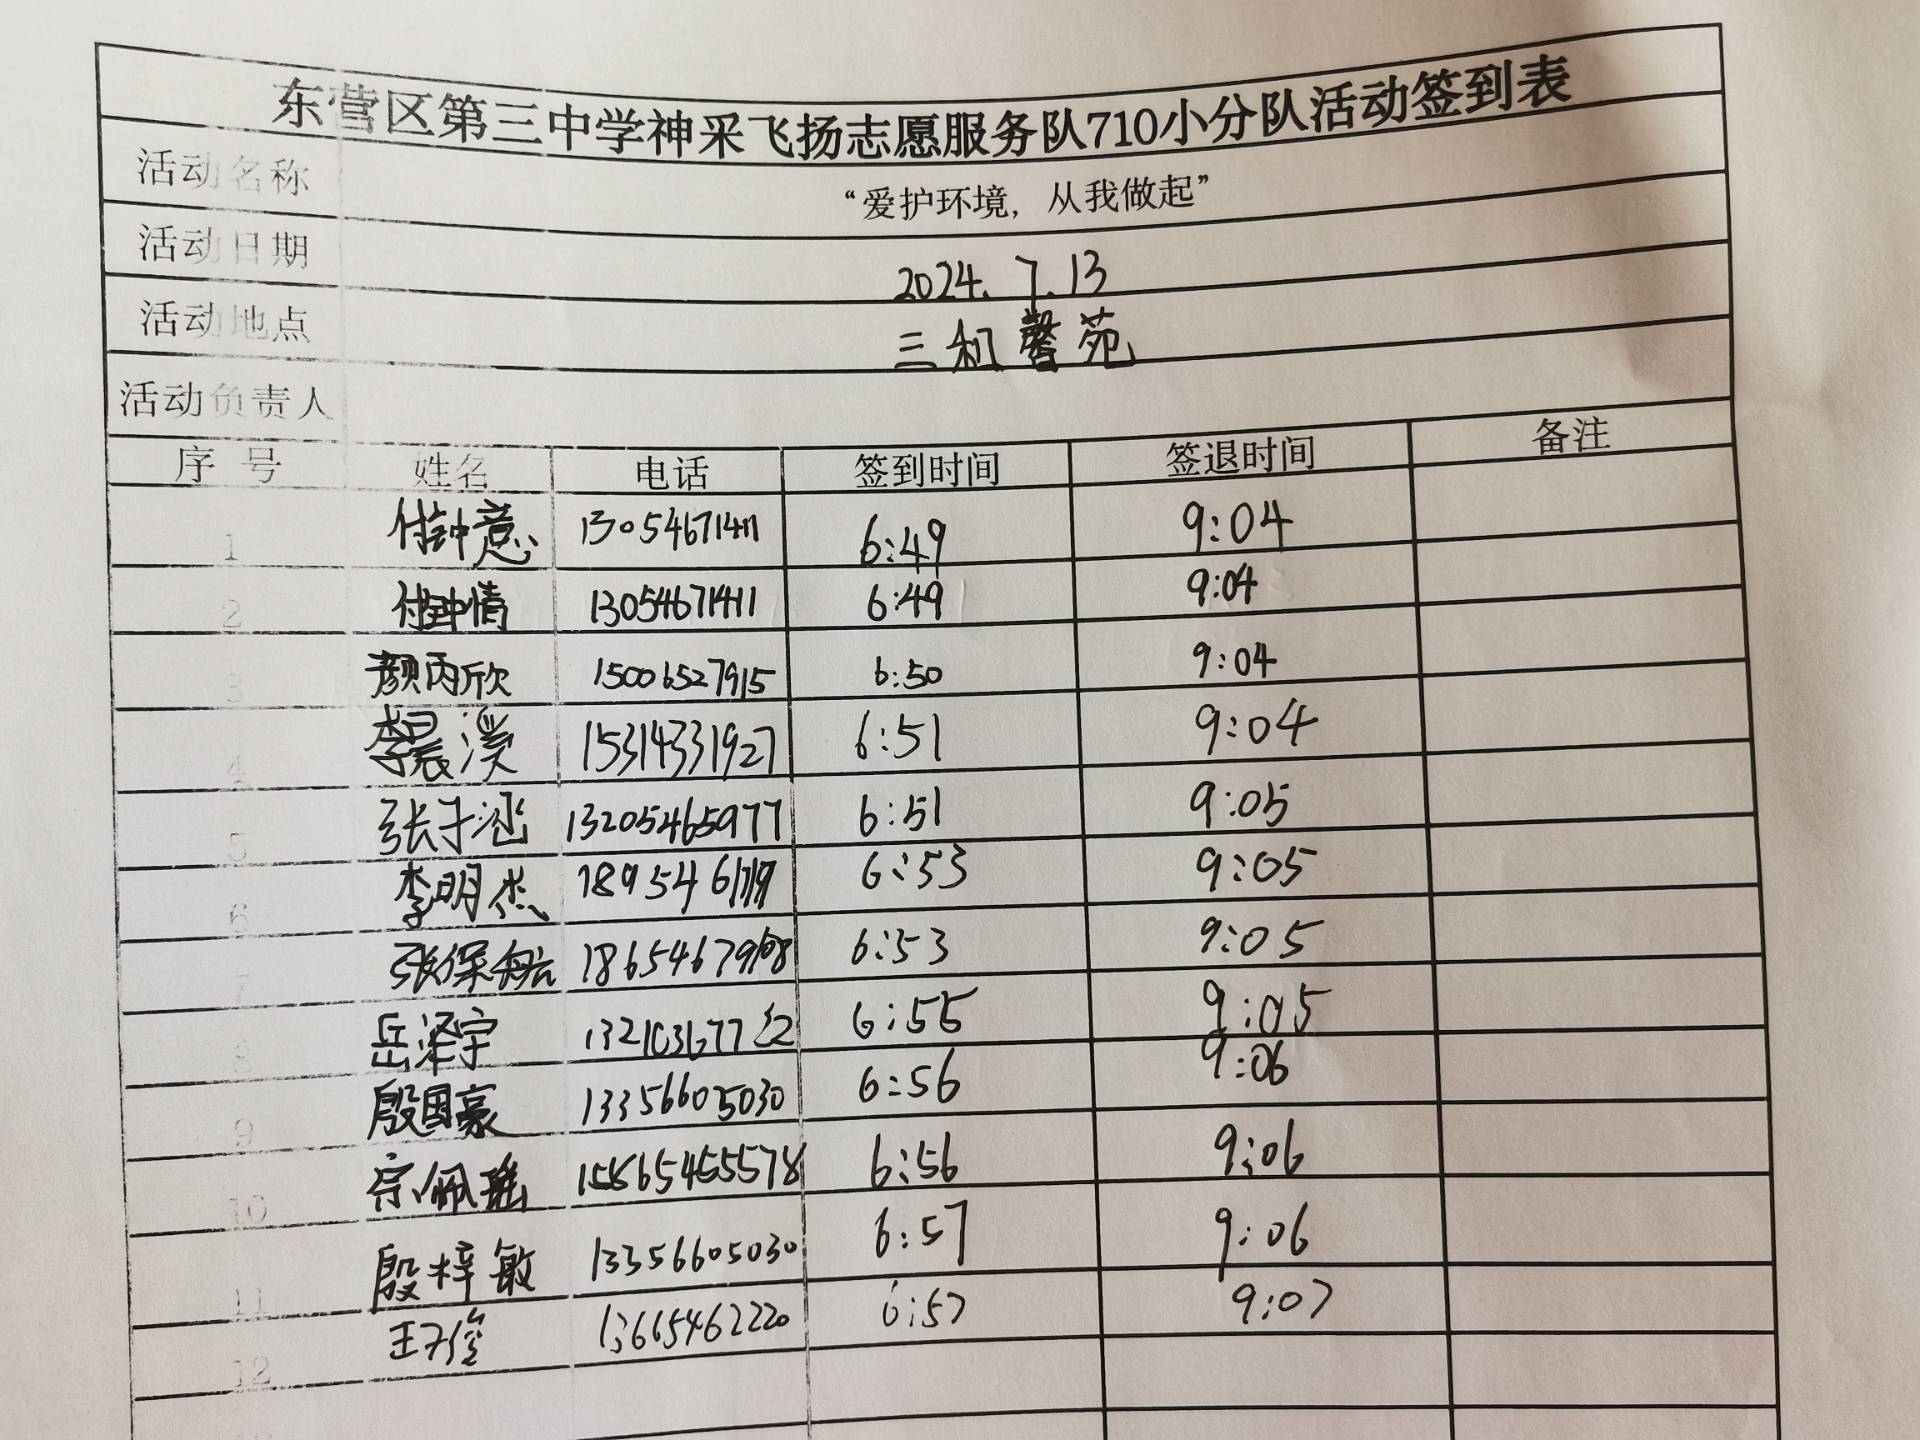 东营区第三中学神采飞扬志愿服务队710小分队活动签到表
活动名称 “爱护环境，从我做起”
活动日期 2024.7.13
活动地点 三和馨苑
活动负责人
序号 姓名 电话 签到时间 签退时间 备注
1 付钟意 13054671411 6:49 9:04
2 付钟情 13054671411 6:49 9:04
3 颜丙欣 15006527915 6:50 9:04
4 李晨溪 15314331927 6:51 9:04
5 张于涵 13205465977 6:51 9:05
6 李明杰 6:53 9:05
7 张保航 6:53 9:05
8 岳泽宇 6:55 9:05
9 殷国豪 13356605030 6:56 9:06
10 宗佩瑶 6:56 9:06
11 殷梓敏 13356605030 6:57 9:06
12 13665462220 6:57 9:07